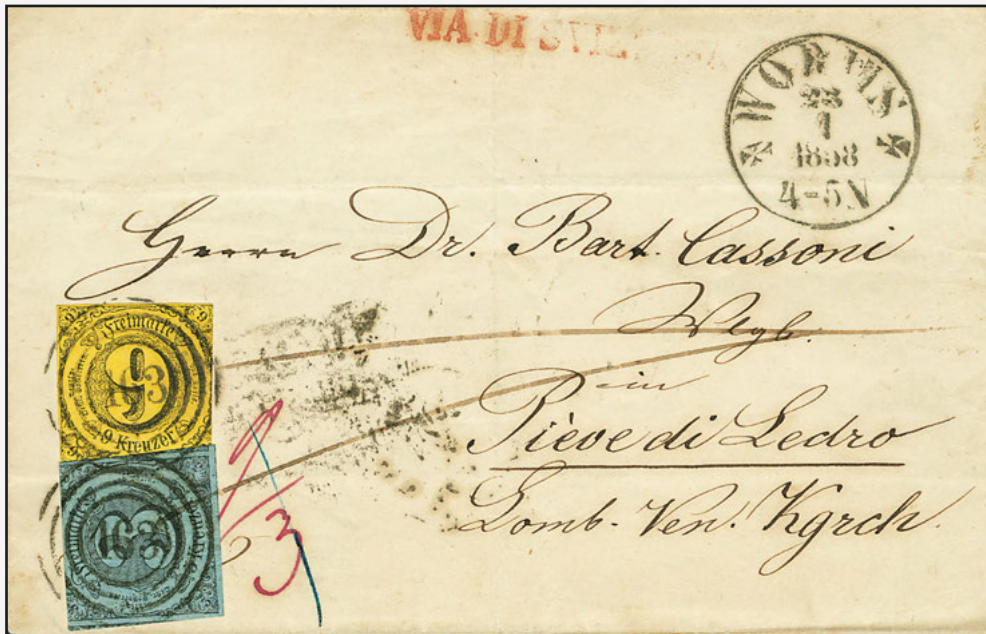 VIA DI
WORMS
23
1
1858
4-5N
Herrn Dr. Bart. Cassoni
Wlgb.
in
Pieve di Ledro
Lomb. Ven. Kgrch.
9
9
Freimarke
9
103
9 Kreuzer
9
9/3
Freimarke
103